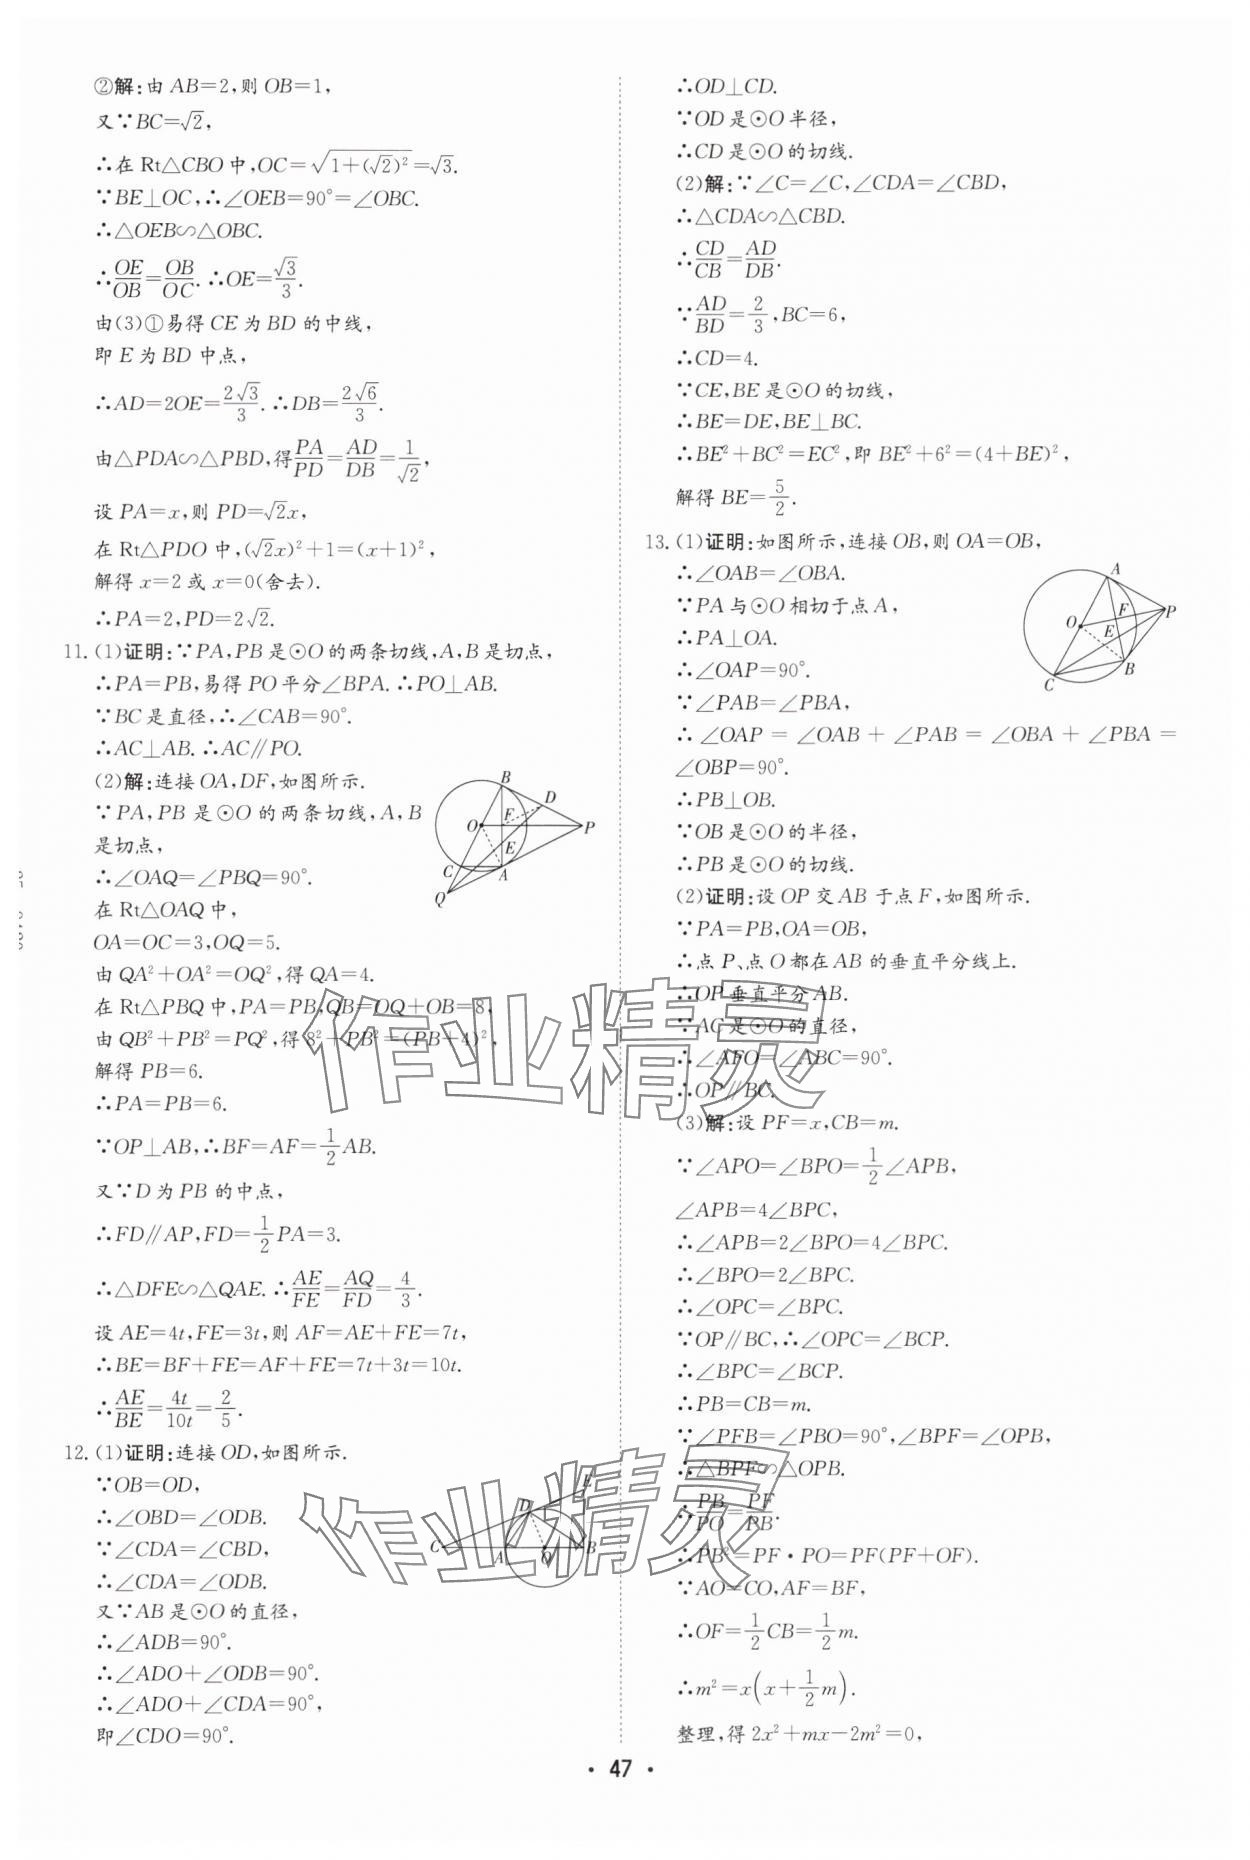 ②解:由 AB=2,则 OB=1,
又∵BC=√2,
∴在 Rt△CBO 中,OC=√(1+(√2)²)=√3.
∵BE⊥OC,∴∠OEB=90°=∠OBC.
∴△OEB∽△OBC.
∴OE/OB=OB/OC.∴OE=√3/3.
由(3)①易得 CE 为 BD 的中线,
即 E 为 BD 中点,
∴AD=2OE=2√3/3.∴DB=2√6/3.
由△PDA∽△PBD,得PA/PD=AD/DB=1/√2,
设 PA=x,则 PD=√2x,
在 Rt△PDO 中,(√2x)²+1=(x+1)²,
解得 x=2 或 x=0(舍去).
∴PA=2,PD=2√2.
11.(1)证明:∵PA,PB 是⊙O 的两条切线,A,B 是切点,
∴PA=PB,易得 PO 平分∠BPA.∴PO⊥AB.
∵BC 是直径,∴∠CAB=90°.
∴AC⊥AB.∴AC∥PO.
(2)解:连接 OA,DF,如图所示.
∵PA,PB 是⊙O 的两条切线,A,B
是切点,
∴∠OAQ=∠PBQ=90°.
在 Rt△OAQ 中,
OA=OC=3,OQ=5.
由 QA²+OA²=OQ²,得 QA=4.
在 Rt△PBQ 中,PA=PB,QB=OQ+OB=8,
由 QB²+PB²=PQ²,得 8²+PB²=(PB+4)²,
解得 PB=6.
∴PA=PB=6.
∵OP⊥AB,∴BF=AF=1/2AB.
又∵D 为 PB 的中点,
∴FD∥AP,FD=1/2PA=3.
∴△DFE∽△QAE.∴AE/FE=AQ/FD=4/3.
设 AE=4t,FE=3t,则 AF=AE+FE=7t,
∴BE=BF+FE=AF+FE=7t+3t=10t.
∴AE/BE=4t/10t=2/5.
12.(1)证明:连接 OD,如图所示.
∵OB=OD,
∴∠OBD=∠ODB.
∵∠CDA=∠CBD,
∴∠CDA=∠ODB.
又∵AB 是⊙O 的直径,
∴∠ADB=90°.
∴∠ADO+∠ODB=90°.
∴∠ADO+∠CDA=90°,
即∠CDO=90°.
B
D
O
F
P
E
C
A
Q
E
D
C
A
O
B
∴OD⊥CD.
∵OD 是⊙O 半径,
∴CD 是⊙O 的切线.
(2)解:∵∠C=∠C,∠CDA=∠CBD,
∴△CDA∽△CBD.
∴CD/CB=AD/DB.
∵AD/BD=2/3,BC=6,
∴CD=4.
∵CE,BE 是⊙O 的切线,
∴BE=DE,BE⊥BC.
∴BE²+BC²=EC²,即 BE²+6²=(4+BE)²,
解得 BE=5/2.
13.(1)证明:如图所示,连接 OB,则 OA=OB,
∴∠OAB=∠OBA.
∵PA 与⊙O 相切于点 A,
∴PA⊥OA.
∴∠OAP=90°.
∵∠PAB=∠PBA,
∴∠OAP=∠OAB+∠PAB=∠OBA+∠PBA=
∠OBP=90°.
∴PB⊥OB.
∵OB 是⊙O 的半径,
∴PB 是⊙O 的切线.
(2)证明:设 OP 交 AB 于点 F,如图所示.
∵PA=PB,OA=OB,
∴点 P、点 O 都在 AB 的垂直平分线上.
∴OP 垂直平分 AB.
∵AC 是⊙O 的直径,
∴∠AFO=∠ABC=90°.
∴OP∥BC.
(3)解:设 PF=x,CB=m.
∵∠APO=∠BPO=1/2∠APB,
∠APB=4∠BPC,
∴∠APB=2∠BPO=4∠BPC.
∴∠BPO=2∠BPC.
∴∠OPC=∠BPC.
∵OP∥BC,∴∠OPC=∠BCP.
∴∠BPC=∠BCP.
∴PB=CB=m.
∵∠PFB=∠PBO=90°,∠BPF=∠OPB,
∴△BPF∽△OPB.
∴PB/PO=PF/PB.
∴PB²=PF·PO=PF(PF+OF).
∵AO=CO,AF=BF,
∴OF=1/2CB=1/2m.
∴m²=x(x+1/2m).
整理,得 2x²+mx-2m²=0,
A
F
P
O
E
B
C
作业精灵
作业精灵
· 47 ·